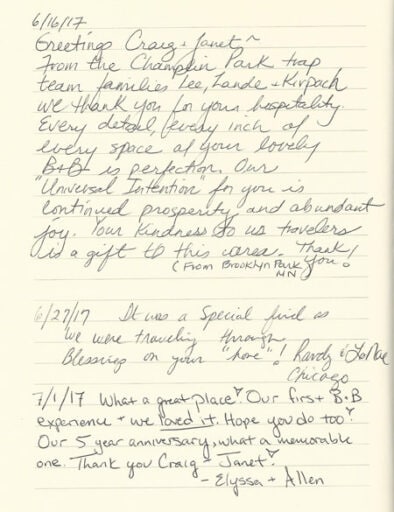 6/16/17
Greetings Craig + Janet ~
From the Champlin Park trap
team families Lee, Lande + Kirpach
we thank you for your hospitality.
Every detail, every inch of
every space of your lovely
B+B is perfection. Our
"Universal Intention" for you is
continued prosperity and abundant
joy. Your kindness to us travelers
is a gift to this area. Thank
you!
(From Brooklyn Park
MN
6/27/17 It was a Special find as
we were traveling through
Blessings on your "home"! Randy & LoRae
Chicago
7/1/17 What a great place! Our first B+B
experience + we loved it. Hope you do too!
Our 5 year anniversary, what a memorable
one. Thank you Craig + Janet!
- Elyssa + Allen